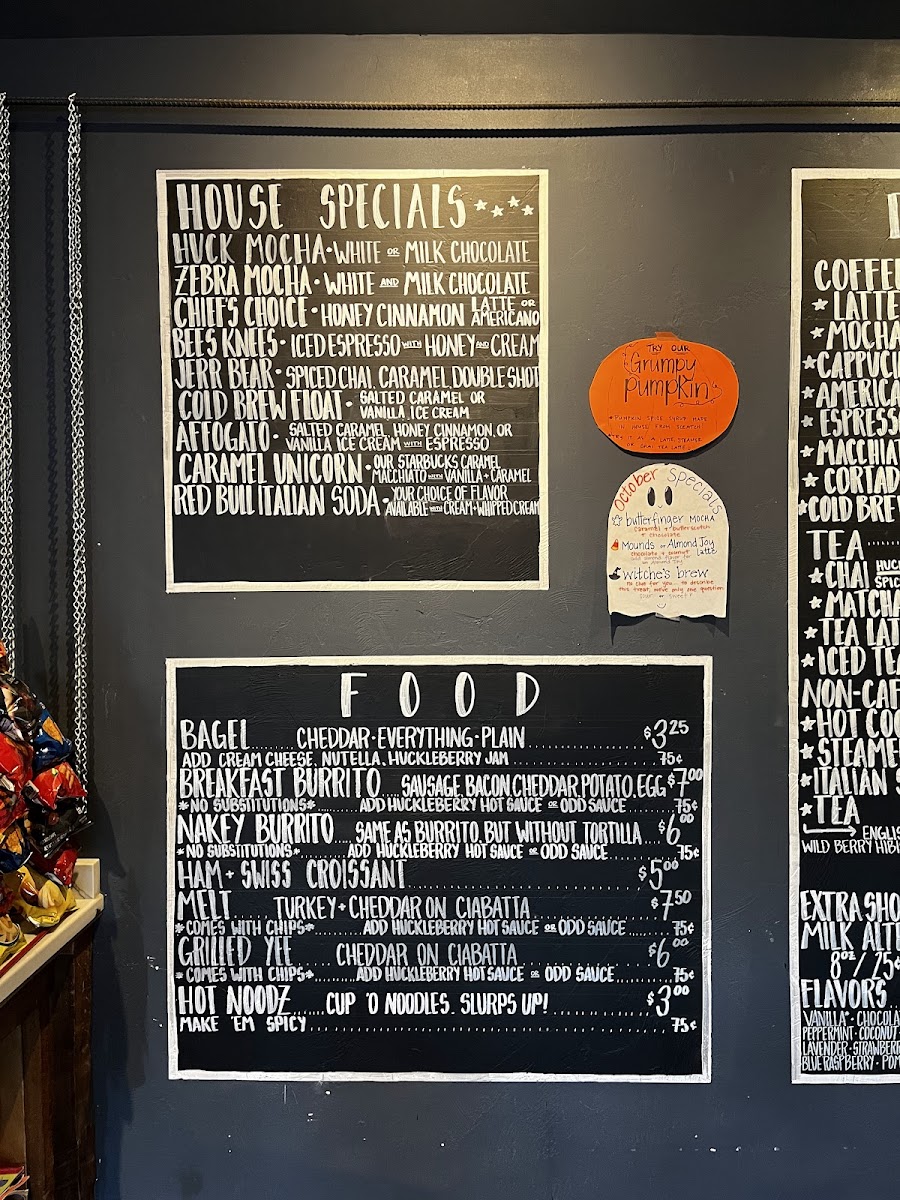 HOUSE SPECIALS
HUCK MOCHA • WHITE OR MILK CHOCOLATE
ZEBRA MOCHA • WHITE AND MILK CHOCOLATE
CHIEF'S CHOICE • HONEY CINNAMON LATTE OR AMERICANO
BEES KNEES • ICED ESPRESSO WITH HONEY AND CREAM
JERR BEAR • SPICED CHAI, CARAMEL, DOUBLE SHOT
COLD BREW FLOAT • SALTED CARAMEL OR
VANILLA ICE CREAM
AFFOGATO • SALTED CARAMEL, HONEY CINNAMON, OR
VANILLA ICE CREAM WITH ESPRESSO
CARAMEL UNICORN • OUR STARBUCKS CARAMEL
MACCHIATO WITH VANILLA + CARAMEL
RED BULL ITALIAN SODA • YOUR CHOICE OF FLAVOR
AVAILABLE WITH CREAM + WHIPPED CREAM
TRY OUR
Grumpy
Pumpkin
* PUMPKIN SPICE SYRUP MADE
IN HOUSE FROM SCRATCH
TRY IT AS A LATTE, STEAMER
OR CHAI TEA LATTE
October Specials
butterfinger MOCHA
caramel + butterscotch
+ chocolate
Mounds or Almond Joy latte
chocolate + coconut
add almond flavor for
an Almond Joy
witche's brew
this treat, we've only one question
FOOD
BAGEL...... CHEDDAR • EVERYTHING • PLAIN ............ $3.25
ADD CREAM CHEESE, NUTELLA, HUCKLEBERRY JAM 75¢
BREAKFAST BURRITO .... SAUSAGE, BACON, CHEDDAR, POTATO, EGG $7.00
*NO SUBSTITUTIONS* ...... ADD HUCKLEBERRY HOT SAUCE OR ODD SAUCE ...... 75¢
NAKEY BURRITO .... SAME AS BURRITO, BUT WITHOUT TORTILLA .. $6.00
*NO SUBSTITUTIONS* ...... ADD HUCKLEBERRY HOT SAUCE OR ODD SAUCE ...... 75¢
HAM + SWISS CROISSANT ............ $5.00
MELT ...... TURKEY + CHEDDAR ON CIABATTA ............ $7.50
*COMES WITH CHIPS* ...... ADD HUCKLEBERRY HOT SAUCE OR ODD SAUCE ...... 75¢
GRILLED YEE CHEDDAR ON CIABATTA $6.00
*COMES WITH CHIPS* ...... ADD HUCKLEBERRY HOT SAUCE OR ODD SAUCE ...... 75¢
HOT NOODZ ...... CUP 'O NOODLES. SLURPS UP! ............ $3.00
MAKE 'EM SPICY ............ 75¢
COFFEE
LATTE
MOCHA
CAPPUCI
AMERICA
ESPRESSO
MACCHIAT
CORTAD
COLD BREW
TEA
CHAI HUC
SPIC
MATCHA
TEA LAT
ICED TEA
NON-CAF
HOT COC
STEAME
ITALIAN S
TEA
ENGLIS
WILD BERRY HIBI
EXTRA SHO
MILK ALTE
8oz / 25¢
FLAVORS
VANILLA* • CHOCOLA
PEPPERMINT • COCONUT
LAVENDER • STRAWBERR
BLUE RASPBERRY • POM